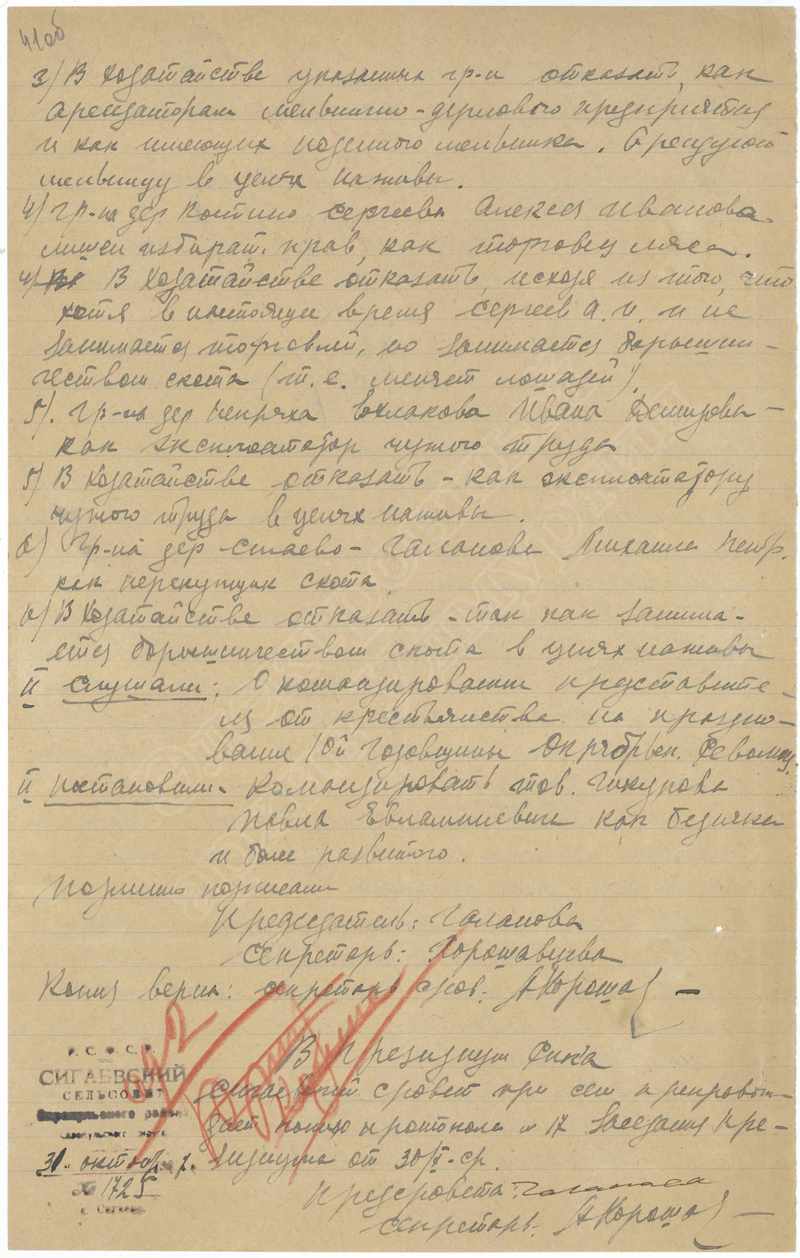 41об
3/ В ходатайстве указанным гр-н отказать, как
арендаторам мельнично-дерлового предприятия
и как имеющих наемного мельника. Арендуют
мельницу в целях наживы.
4/ Гр-на дер Костино Сергеева Алексея Иванова
лишен избират. прав, как торговец мяса.
4/ В ходатайстве отказать, исходя из того, что
хотя в настоящее время Сергеев А. И. и не
занимается торговлей, но занимается барышни-
чеством скота (т. е. меняет лошадей).
5/. Гр-на дер Непряха Вахлакова Ивана Демидовы-
как эксплоататор чужого труда
5/ В ходатайстве отказать - как эксплоататору
чужого труда в целях наживы.
6/ Гр-на дер Сигаево - Галанова Михаила Петр.
как перекупщик скота
6/ В ходатайстве отказать - так как занима-
ется барышничеством скота в целях наживы
II Слушали: О командировании представите-
ля от крестьянства на праздно-
вание 10й годовщины Октябрьск. Революц.
II Постановили. Командировать тов.
Павла Евлампиевича как бедняка
и более развитого.
Подлинно подписали
Председатель: Галанова
Секретарь: Хорошавцева
Копия верна: секретарь с/сов:
В Президиум Рик'а
Р. С. Ф. С. Р.
СИГАЕВСКИЙ
СЕЛЬСОВЕТ
Сарапульского района
31 октяб. 7
№ 1725
с. Сигаево
Сигаевский с/совет при сем препровож-
дает копию протокола № 17 заседания Пре-
зидиума от 30/X-с.г.
Предс/совета:
Секретарь: